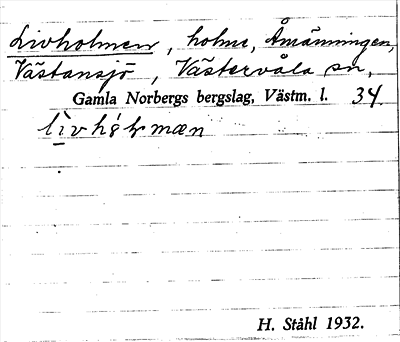 Livholmen, holme, Åmänningen,
Västansjö, Västervåla sn,
Gamla Norbergs bergslag, Västm. l. 34
H. Ståhl 1932.